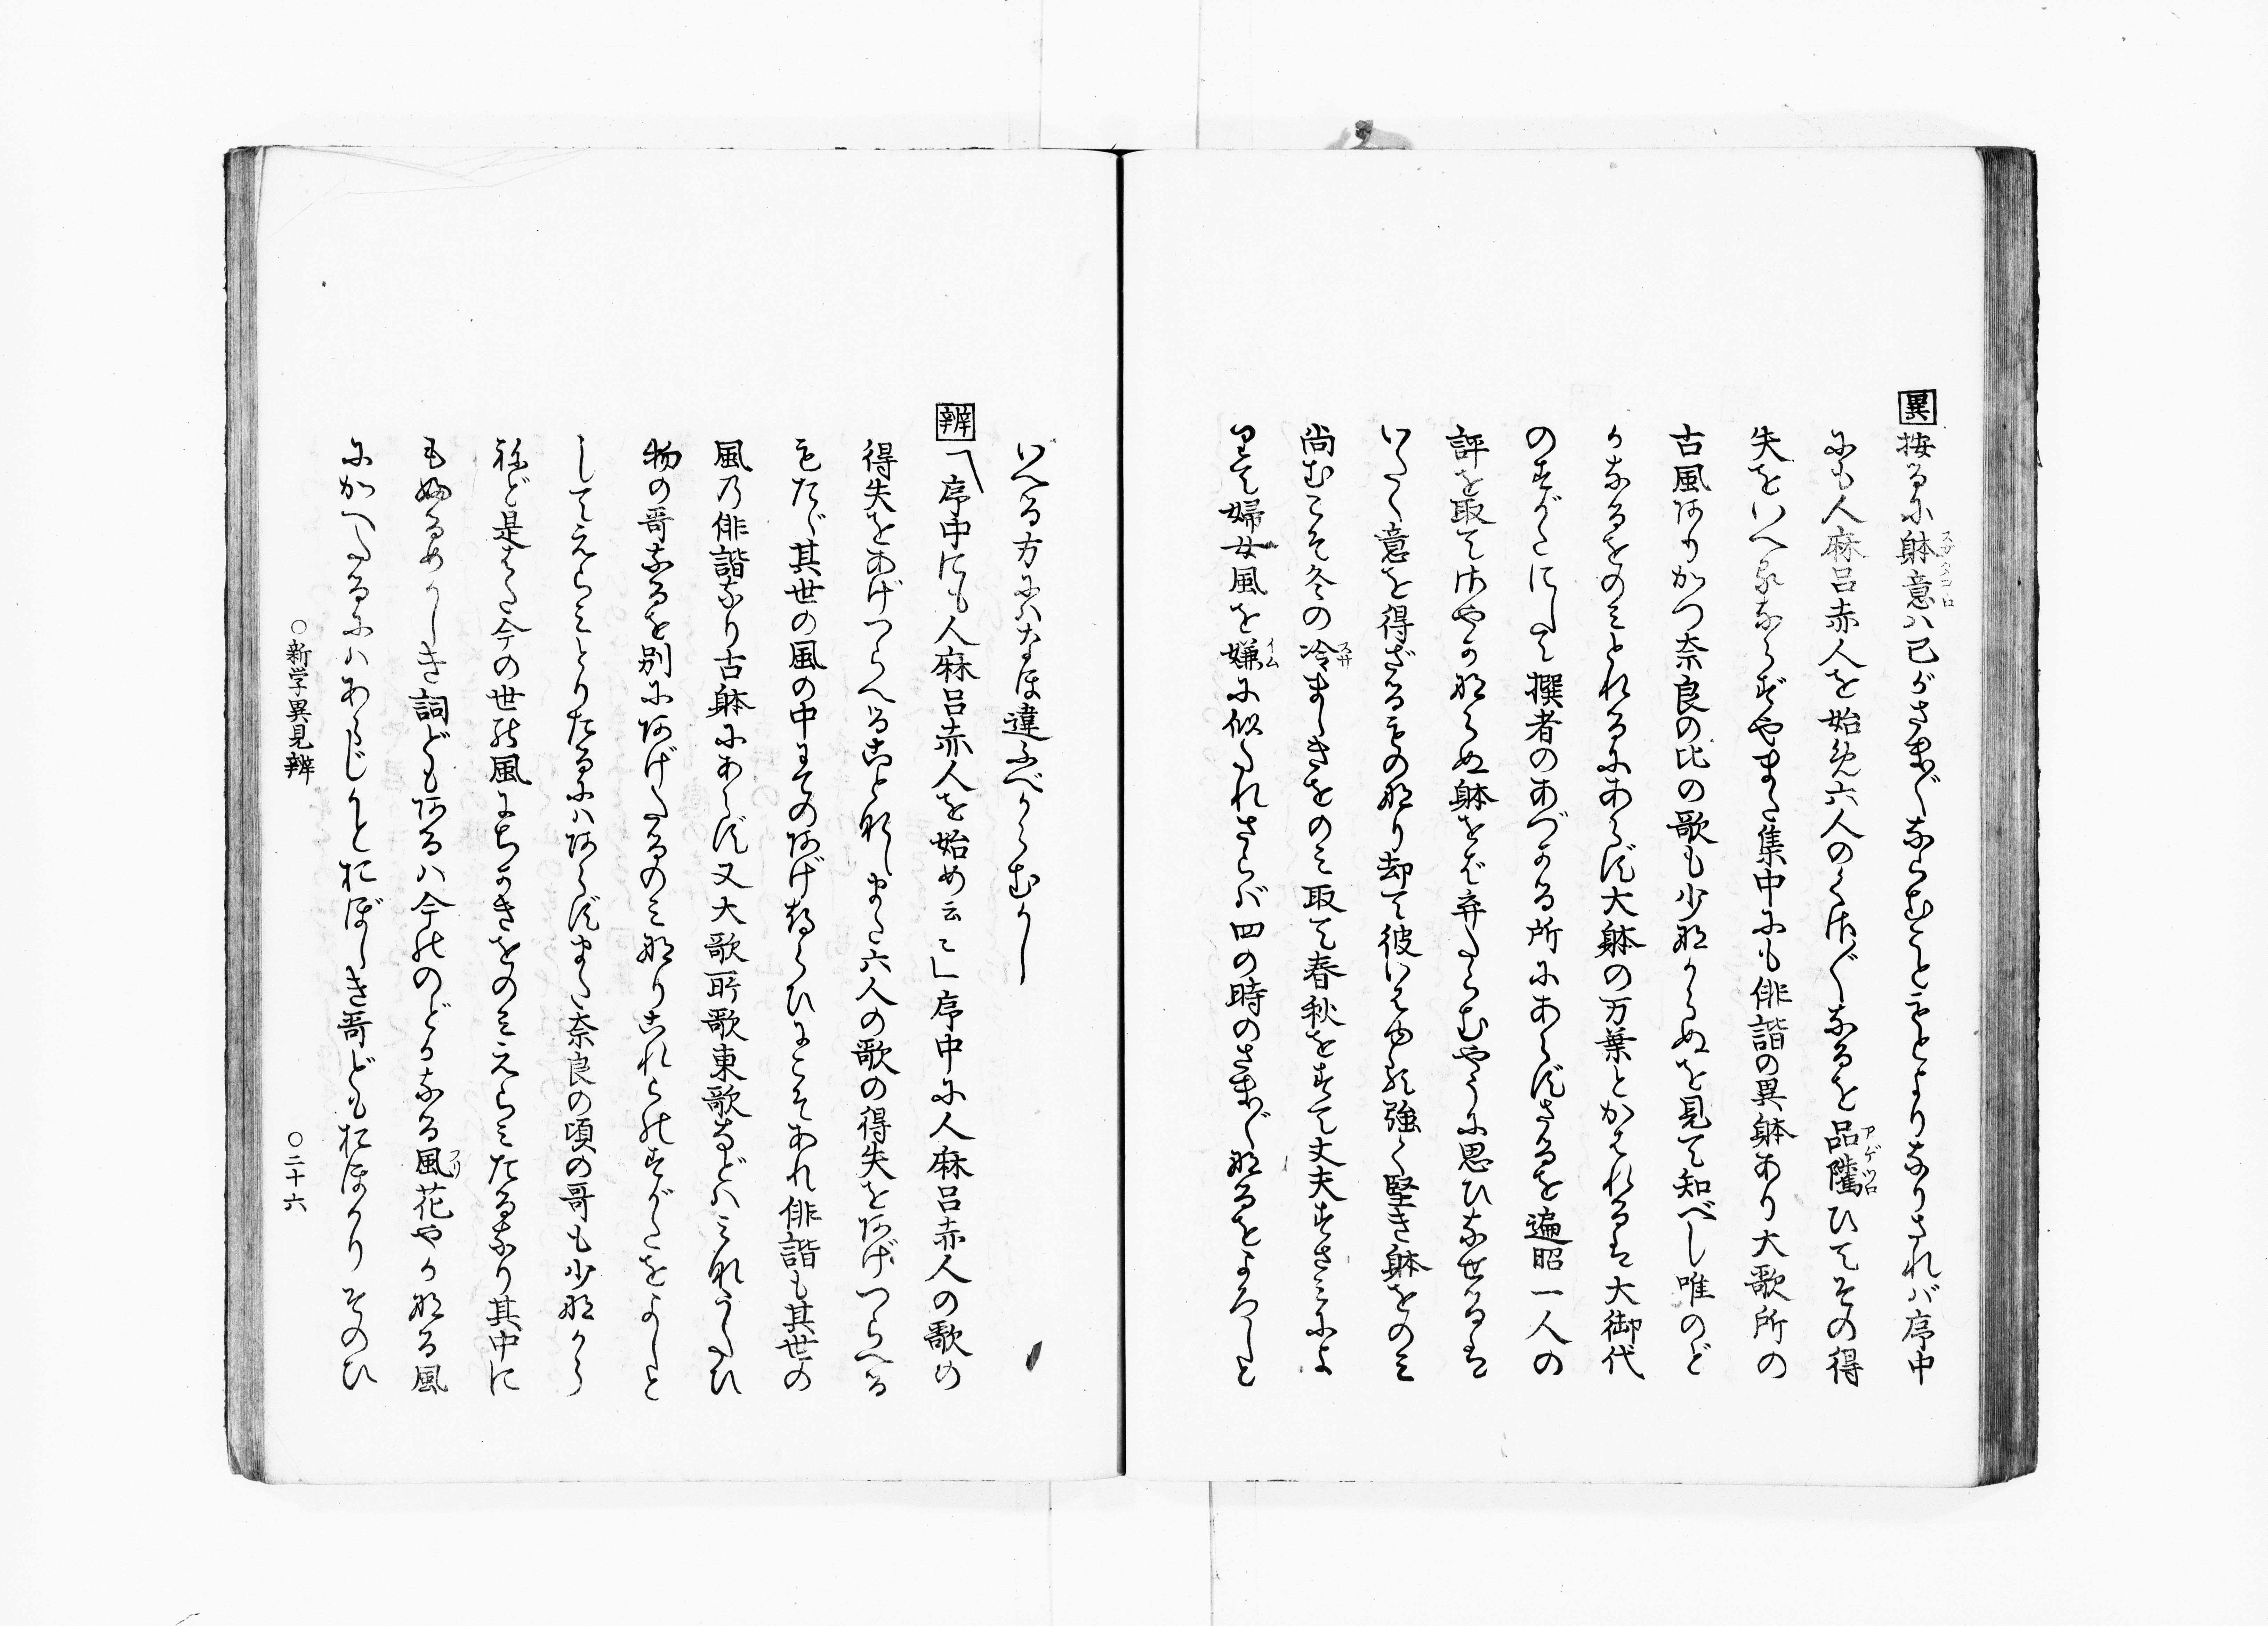 異 按るに躰意ハ己がさま〴〵ならむことをもとよりなりされバ序中
にも人麻呂赤人を始め六人のくさ〴〵なるを品隲ひてその得
失をいへりならずやまた集中にも俳諧の異躰あり大歌所の
古風ありかつ奈良の比の歌も少なからぬを見て知べし唯のど
かなるをのミとれるにあらず大躰の万葉とかはれるは大御代
のすがたにして撰者のあづかる所にあらずさるを遍昭一人の
評を取てほやかならぬ躰をば弃たらむやうに思ひなせるは
いたく意を得ざるもの也り却て彼いはゆる強く堅き躰をのミ
尚むこそ冬の冷ましきをのミ取て春秋をすて丈夫すさミによ
りて婦女風を嫌に似たれさらバ四の時のさま〴〵なるをよろしと
いへる方にハなほ違ふべからむかし
辨 「序中にも人麻呂赤人を始め云々」序中に人麻呂赤人の歌の
得失をあげつらへること無しまた六人の歌の得失をあげつらへる
もたゞ其世の風の中にての あげつらひにこそあれ俳諧も其世の
風乃俳諧なり古躰にあらず又大歌所歌東歌などハミなうたひ
物の哥なるを別にあげたるのミなりこれらのすがたをよしと
してえらミとりたるにハあらずまた奈良の頃の哥も少なから
ねど是はた今の世の風にちかきをのミえらミたるなり其中に
も ふるめかしき詞どもあるハ今ののどかなる風花やかなる風
にかへたるにハあらじかとおぼしき哥どもおほかり そのひ
○新学異見辨
○二十六